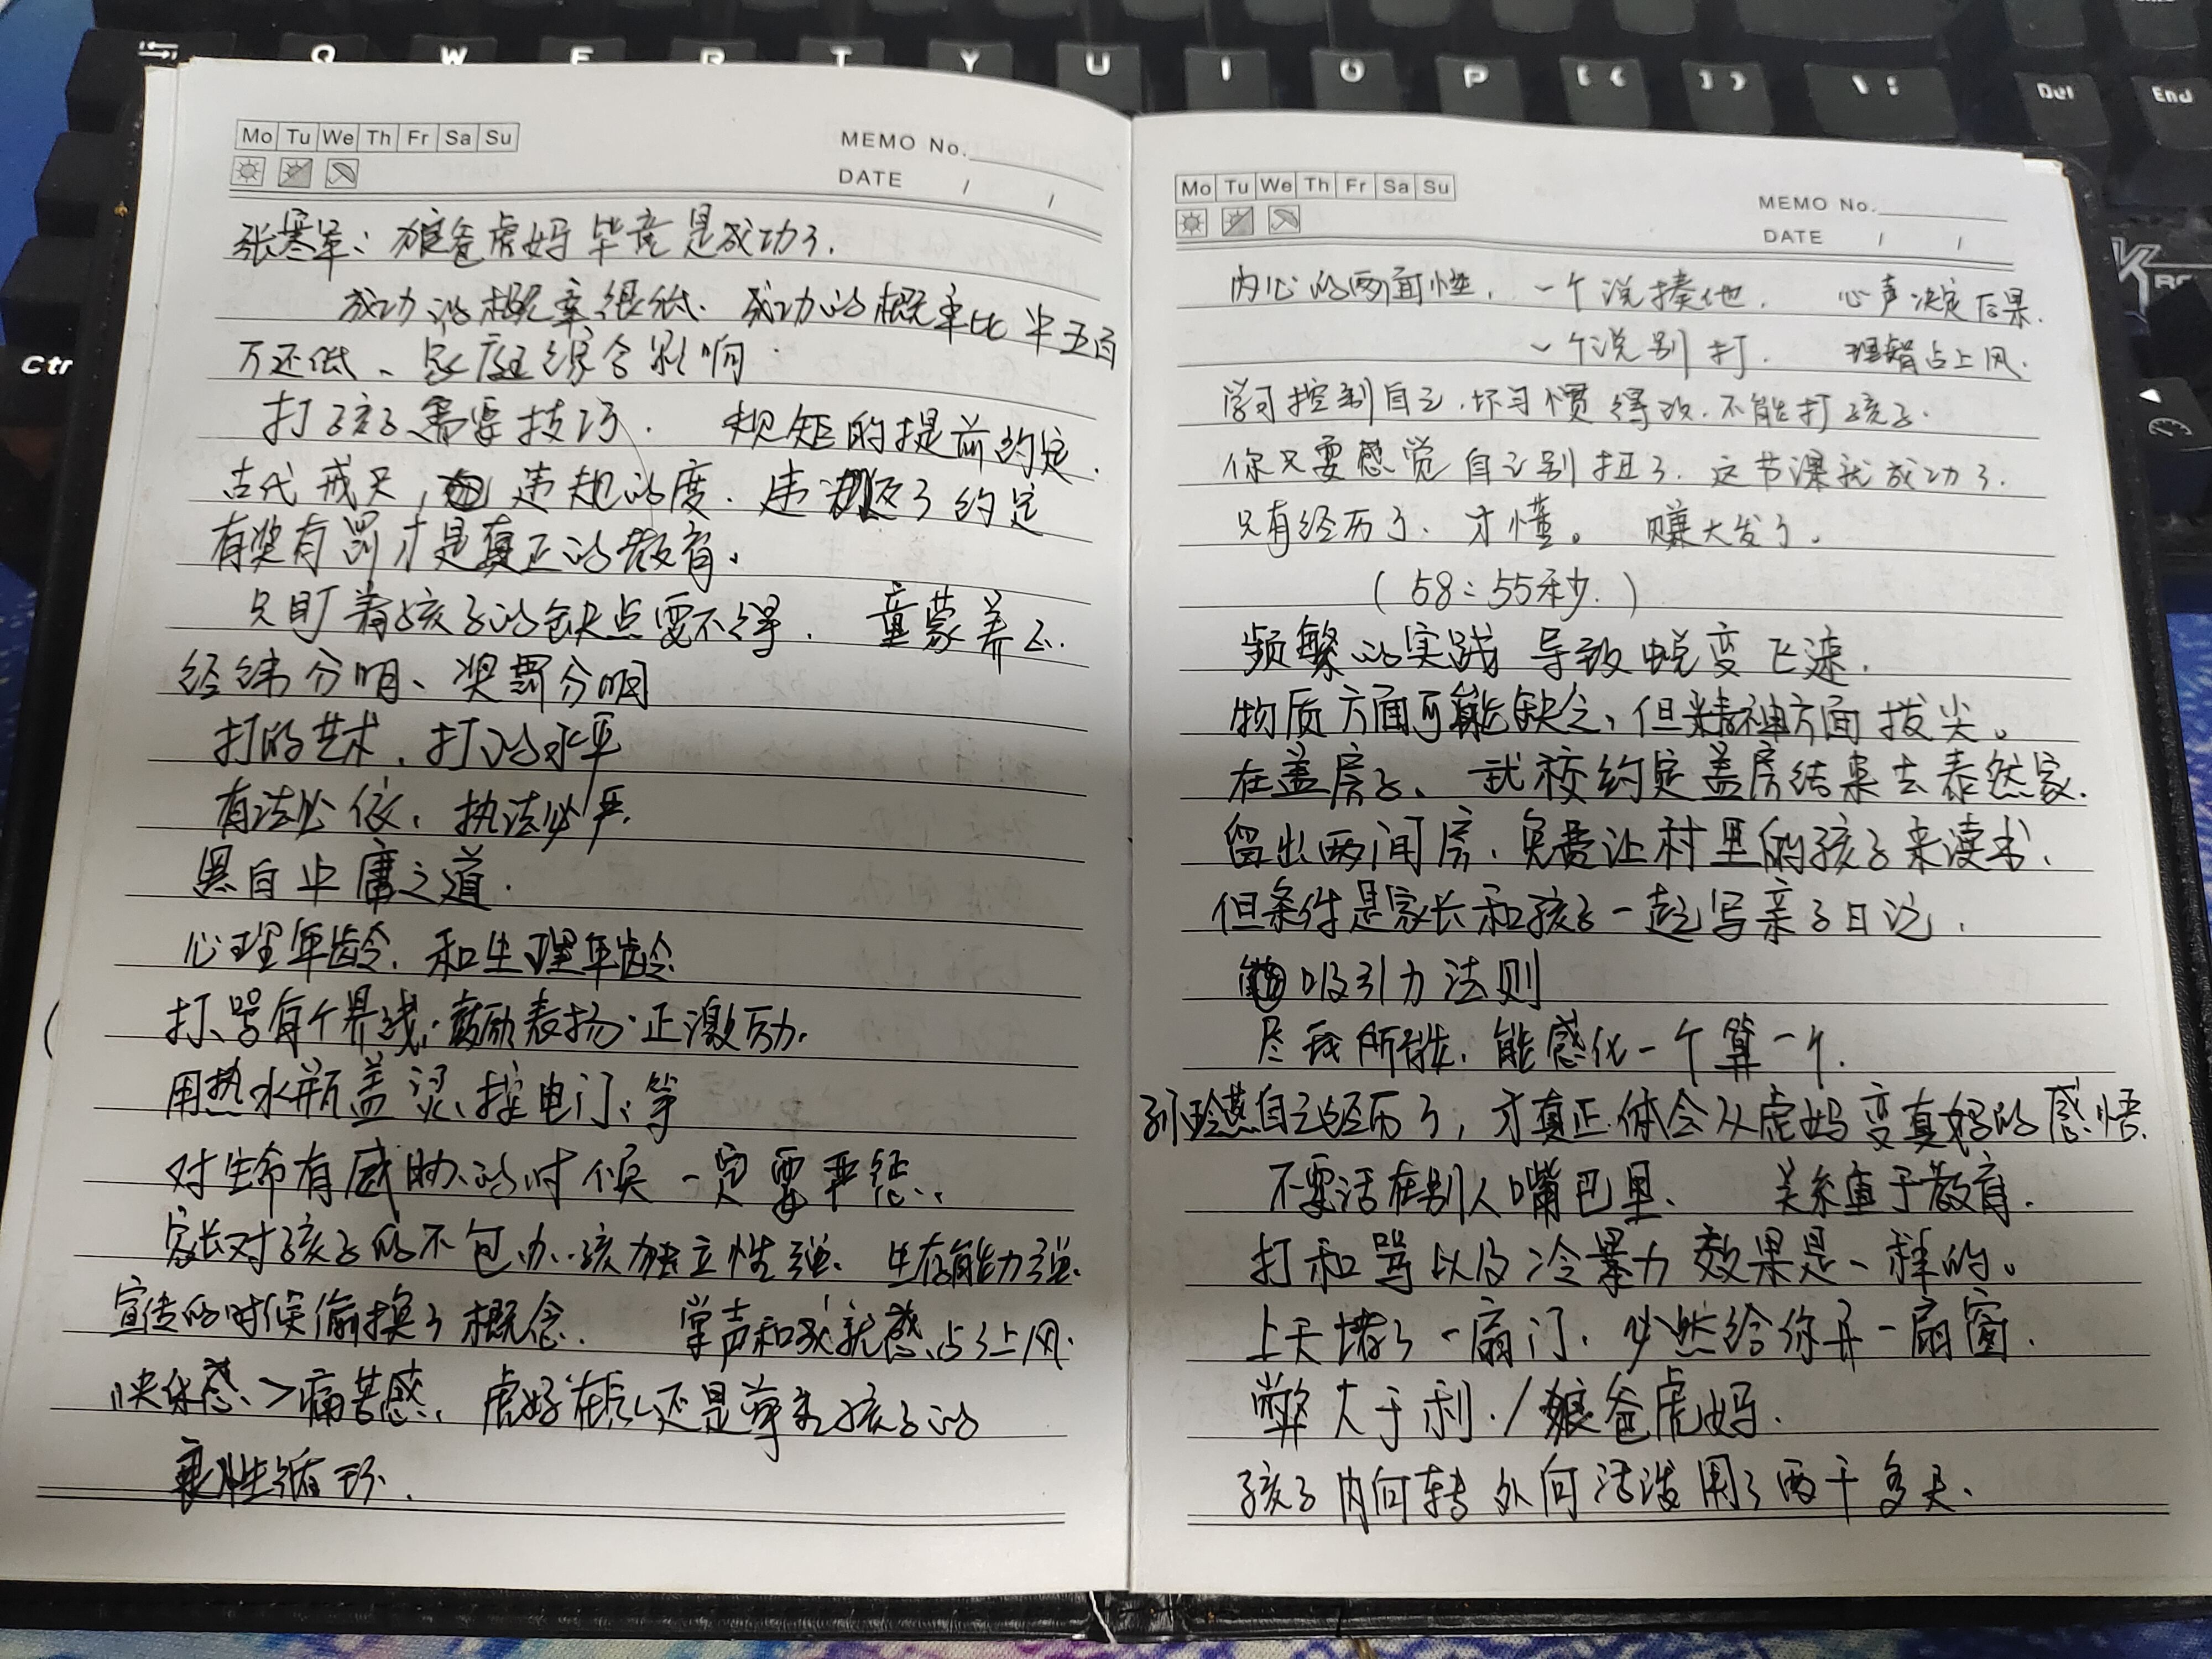 Q W E R T Y U I O P
Del End
Ctr
Mo Tu We Th Fr Sa Su
MEMO No.
DATE / /
张寒军：狼爸虎妈毕竟是成功了.
成功的概率很低. 成功的概率比中五百
万还低、家庭综合影响.
打孩子需要技巧. 规矩的提前约定.
古代戒尺, 违规的度. 违反了约定
有奖有罚才是真正的教育.
只盯着孩子的缺点要不得. 童蒙养正.
经纬分明、奖罚分明
打的艺术. 打的水平
有法必依, 执法必严.
黑白中庸之道.
心理年龄. 和生理年龄
打、骂有个界线. 鼓励表扬. 正激励.
用热水瓶盖烫、摸电门、等
对生命有威胁的时候一定要严惩.
家长对孩子的不包办. 孩独立性强. 生存能力强.
宣传的时候偷换了概念. 掌声和成就感占了上风.
快乐感>痛苦感. 虎妈在后还是尊重孩子的
良性循环.
Mo Tu We Th Fr Sa Su
MEMO No.
DATE / /
内心的两面性. 一个说揍他. 心声决定后果.
一个说别打. 理智占上风.
学习控制自己. 坏习惯得改. 不能打孩子.
你只要感觉自己别扭了. 这节课就成功了.
只有经历了. 才懂。 赚大发了.
(58:55秒.)
频繁的实践导致蜕变飞速.
物质方面可能缺乏, 但精神方面拔尖。
在盖房子、武校约定盖房结束去泰然家.
留出两间房. 免费让村里的孩子来读书.
但条件是家长和孩子一起写亲子日记.
吸引力法则
尽我所能. 能感化一个算一个.
孙玲燕自己经历了, 才真正体会从虎妈变真好的感悟.
不要活在别人嘴巴里. 关系重于教育.
打和骂以及冷暴力效果是一样的。
上天堵了一扇门. 必然给你开一扇窗.
弊大于利. / 狼爸虎妈.
孩子内向转外向活泼用了两千多天.